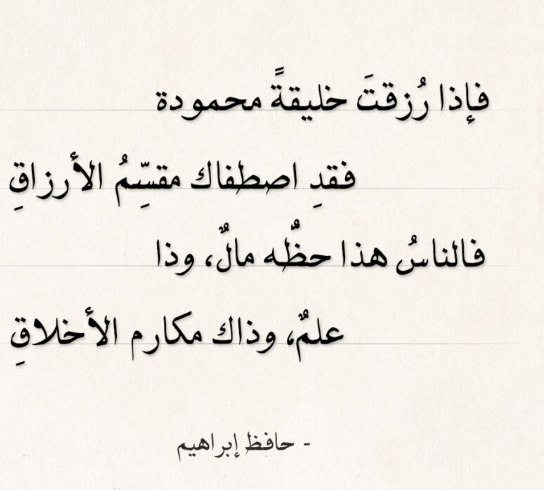 فإذا رُزقتَ خليقةً محمودة
فقدِ اصطفاك مقسِّمُ الأرزاقِ
فالناسُ هذا حظُّه مالٌ، وذا
علمٌ، وذاك مكارم الأخلاقِ
- حافظ إبراهيم